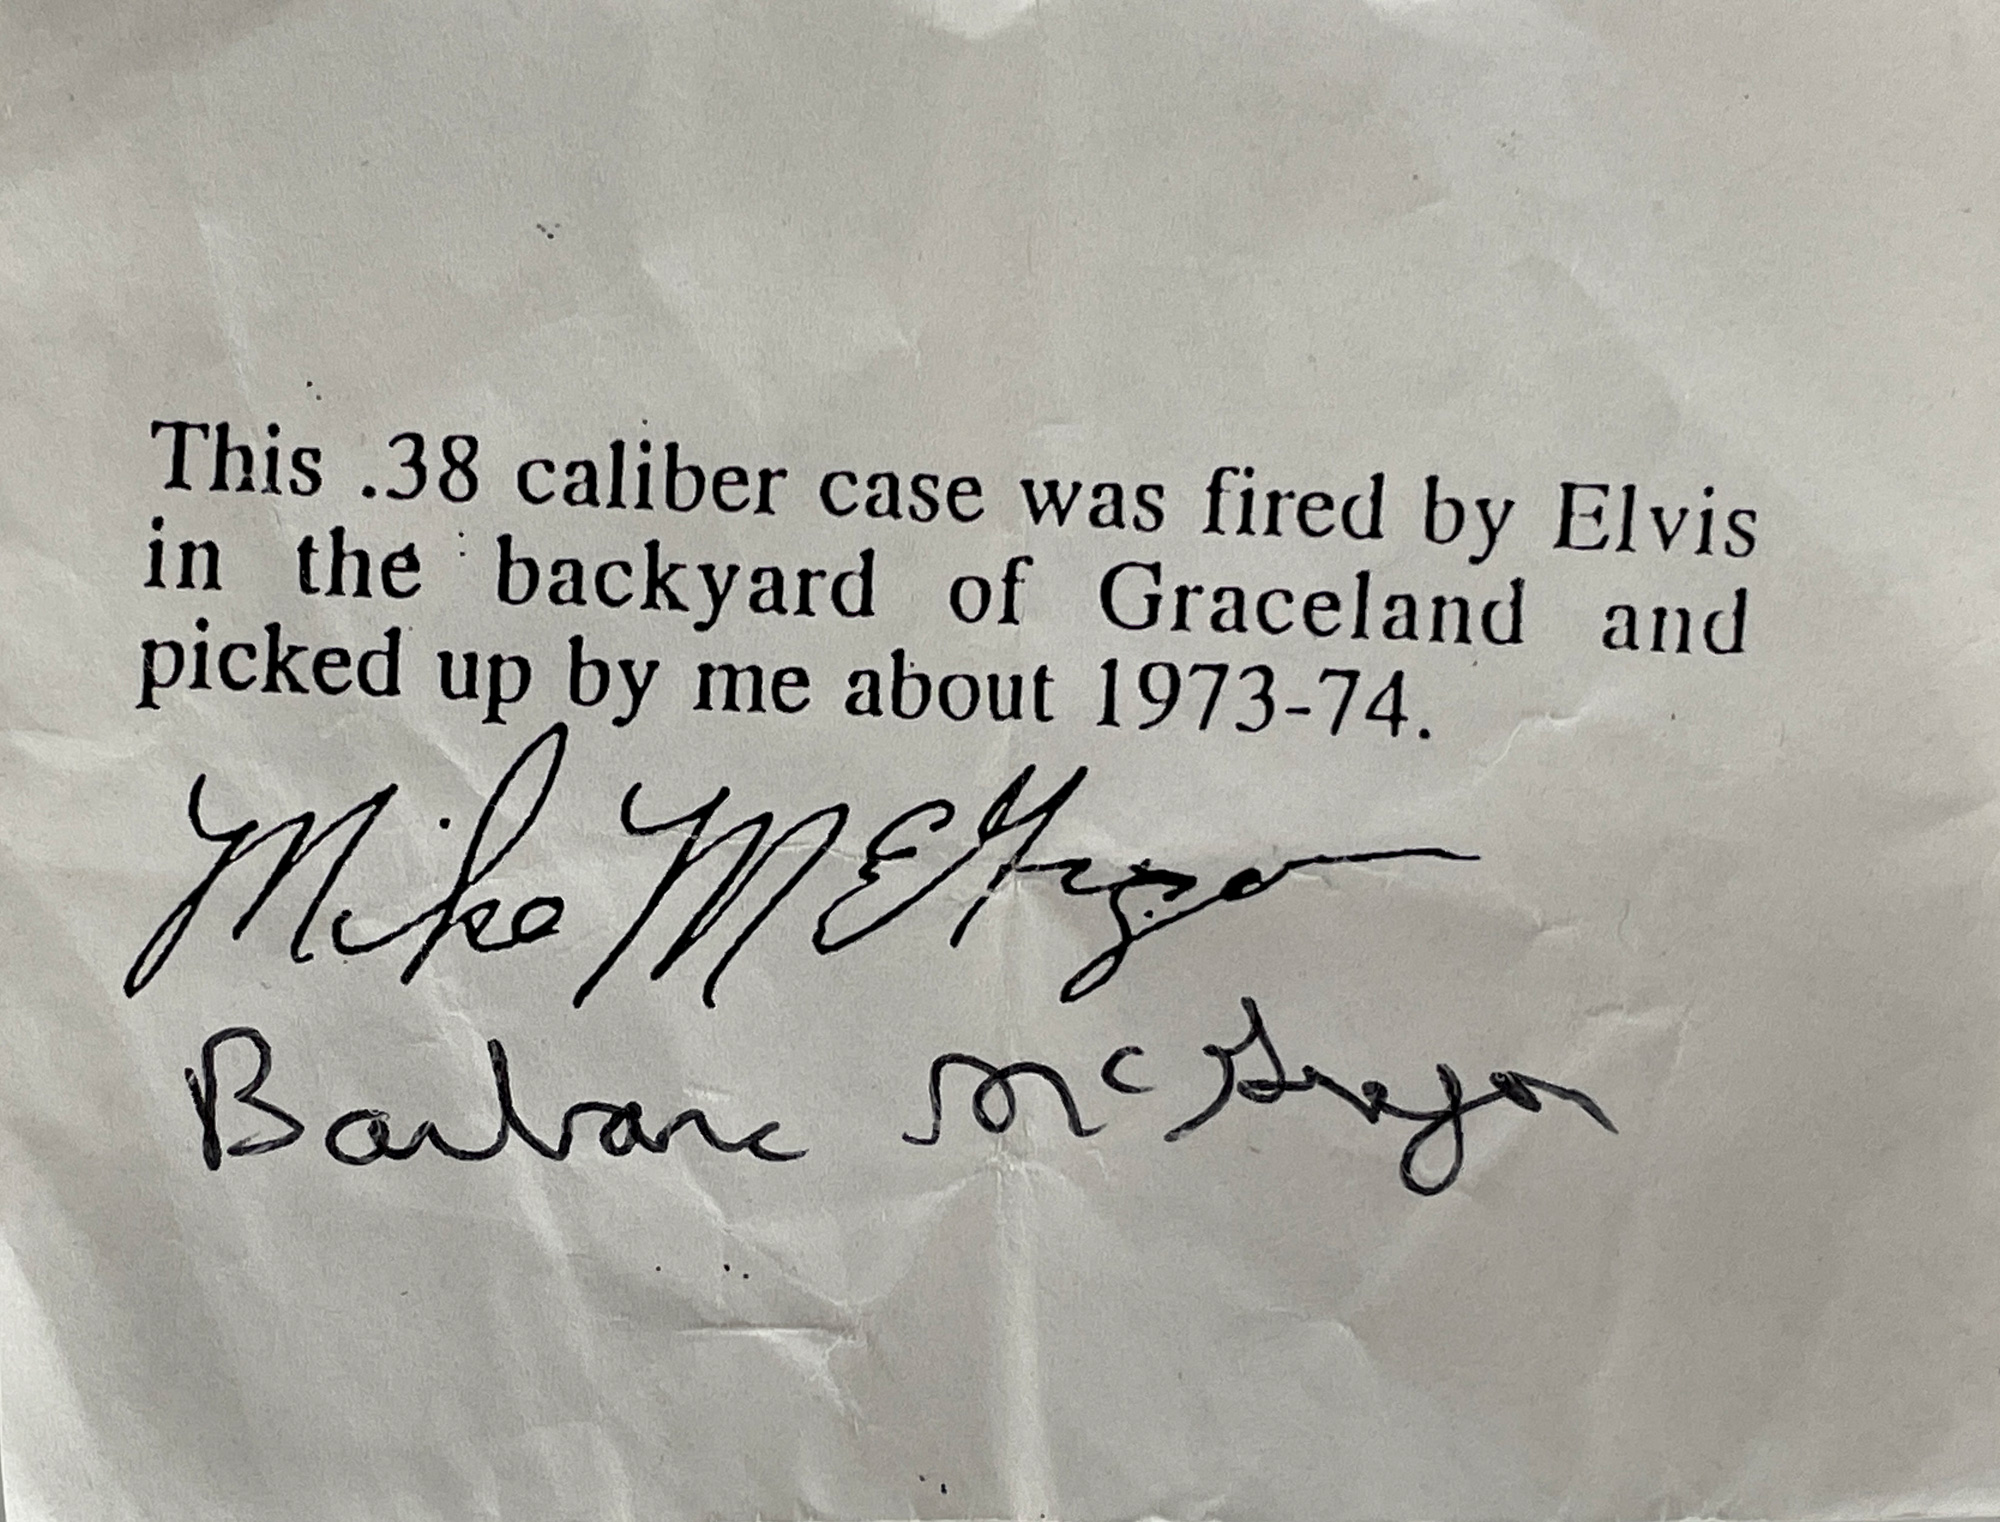 This .38 caliber case was fired by Elvis
in the backyard of Graceland and
picked up by me about 1973-74.
Mike McGregor
Barbara McGregor